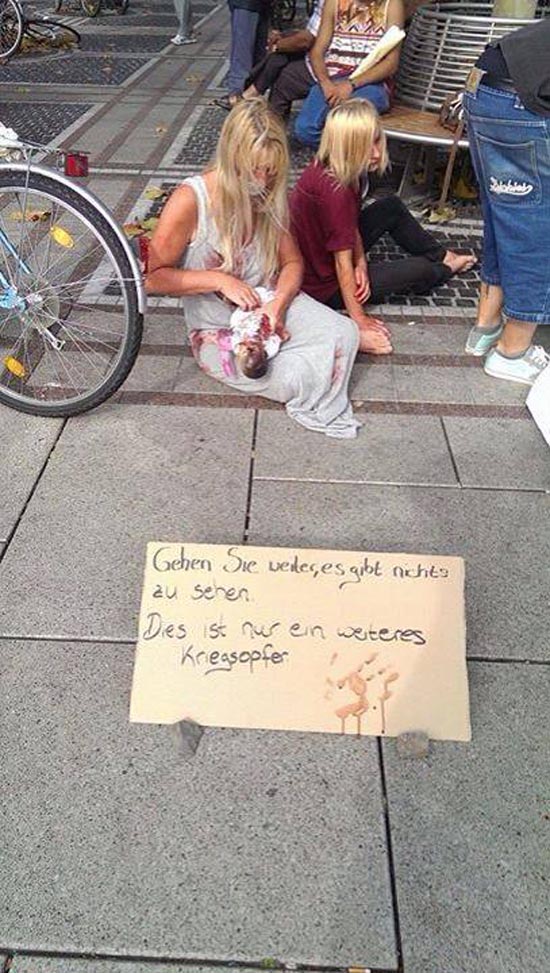 Gehen Sie weiter, es gibt nichts
zu sehen.
Dies ist nur ein weiteres
Kriegsopfer